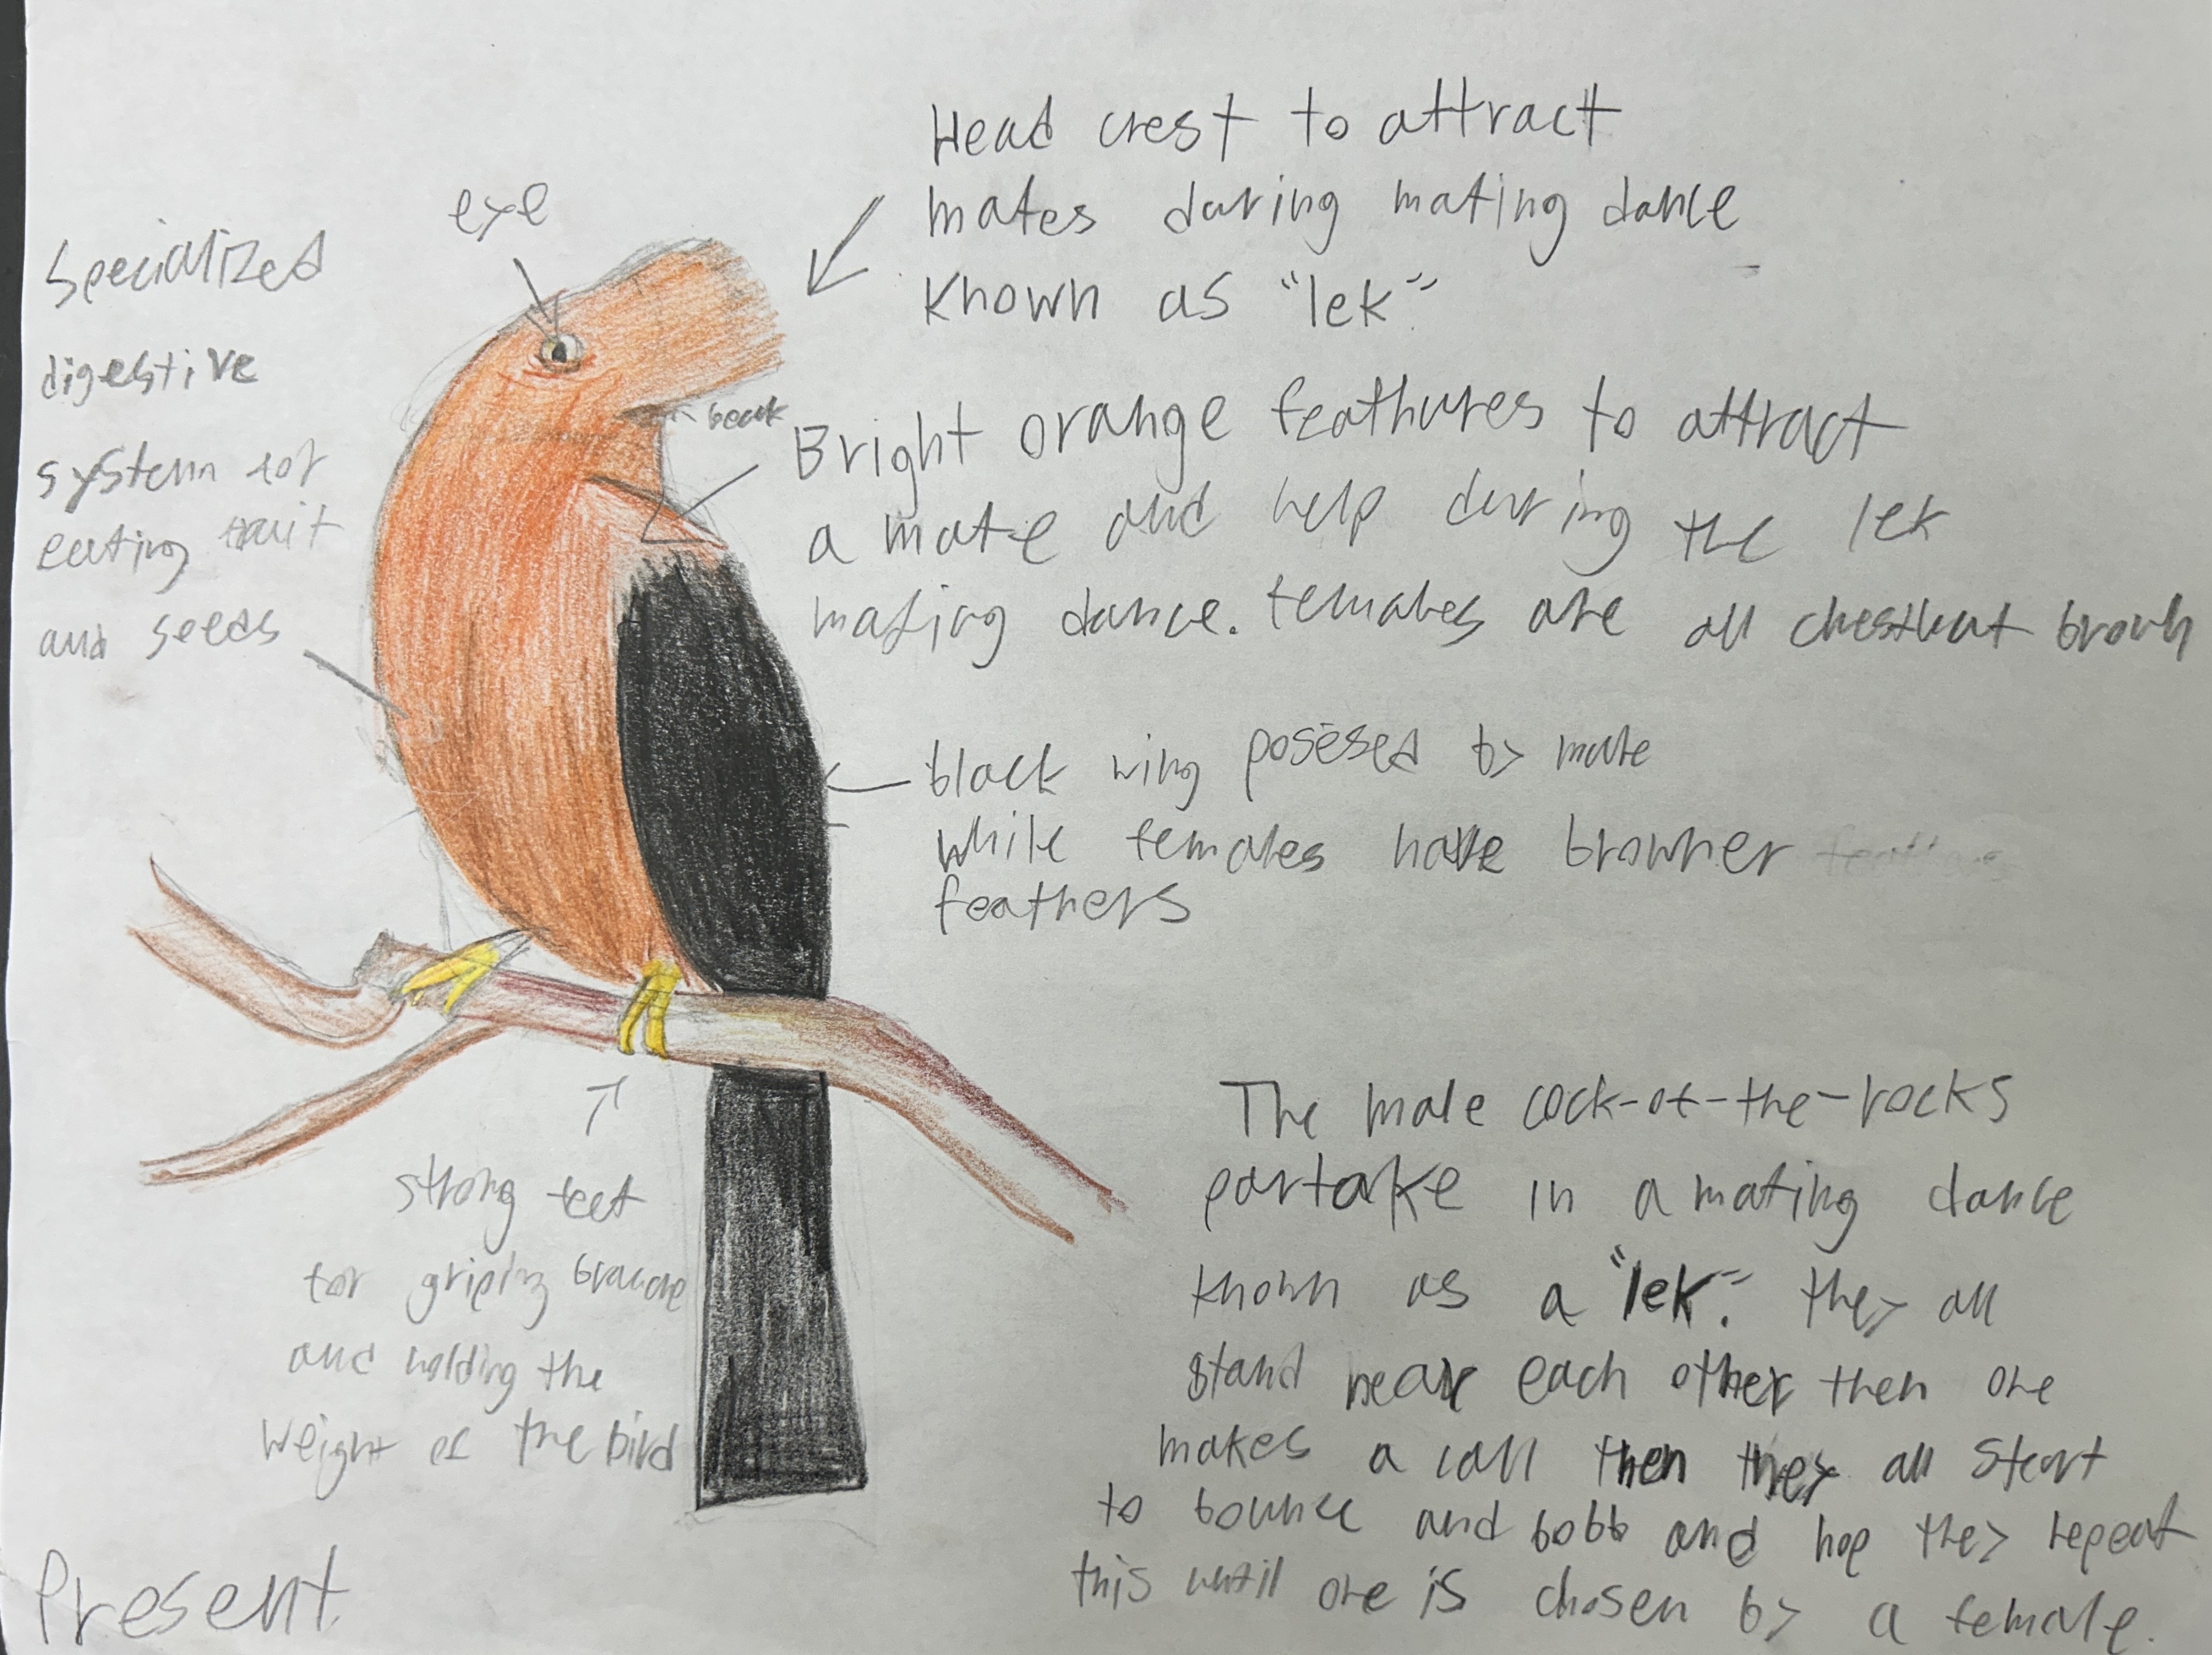 Head crest to attract
mates during mating dance
known as "lek"
eye
Specialized
digestive
system for
eating fruit
and seeds
beak
Bright orange feathures to attract
a mate and help during the lek
mating dance. females are all chestnut brown
black wing posesed by male
while females have browner
feathers
strong feet
for griping branche
and holding the
weight of the bird
The male cock-of-the-rocks
partake in a mating dance
known as a "lek". they all
stand near each other then one
makes a call then they all start
to bounce and bobb and hop they repeat
this until one is chosen by a female.
Present